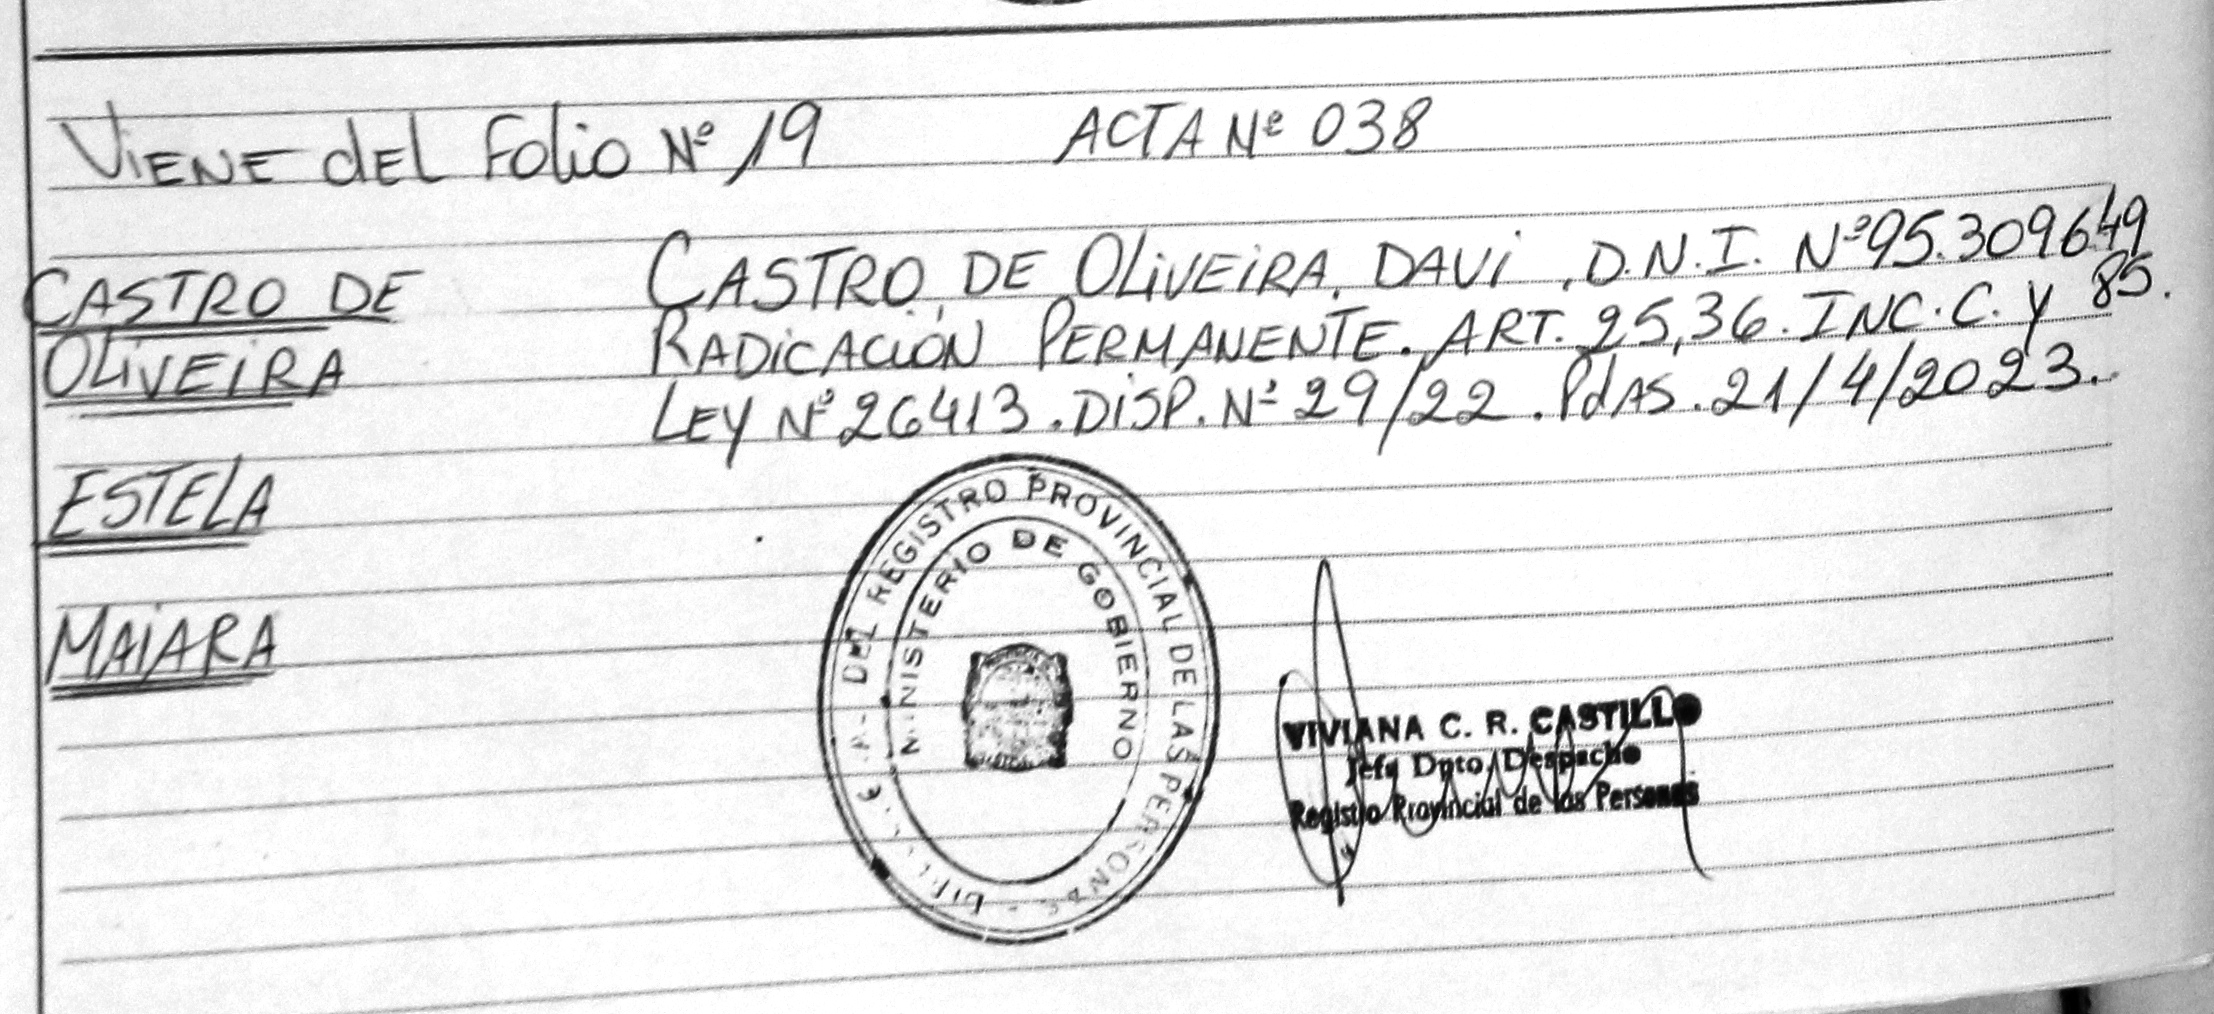 VIENE dEL Folio Nº 19 ACTA Nº 038
CASTRO DE
OLiVEiRA
ESTELA
MAiARA
CASTRO, DE OLiVEiRA, DAVi, D.N.I. Nº 95.309649
RADiCACiÓN PERMANENTE. ART. 25,36. INC. C. y 85.
LEY Nº 26413. DiSP. Nº 29/22. PdAS. 21/4/2023.
DEL REGISTRO PROVINCIAL DE LAS PERSONAS
MINISTERIO DE GOBIERNO
VIVIANA C. R. CASTILLO
Jefa Dpto. Despacho
Registro Provincial de las Personas